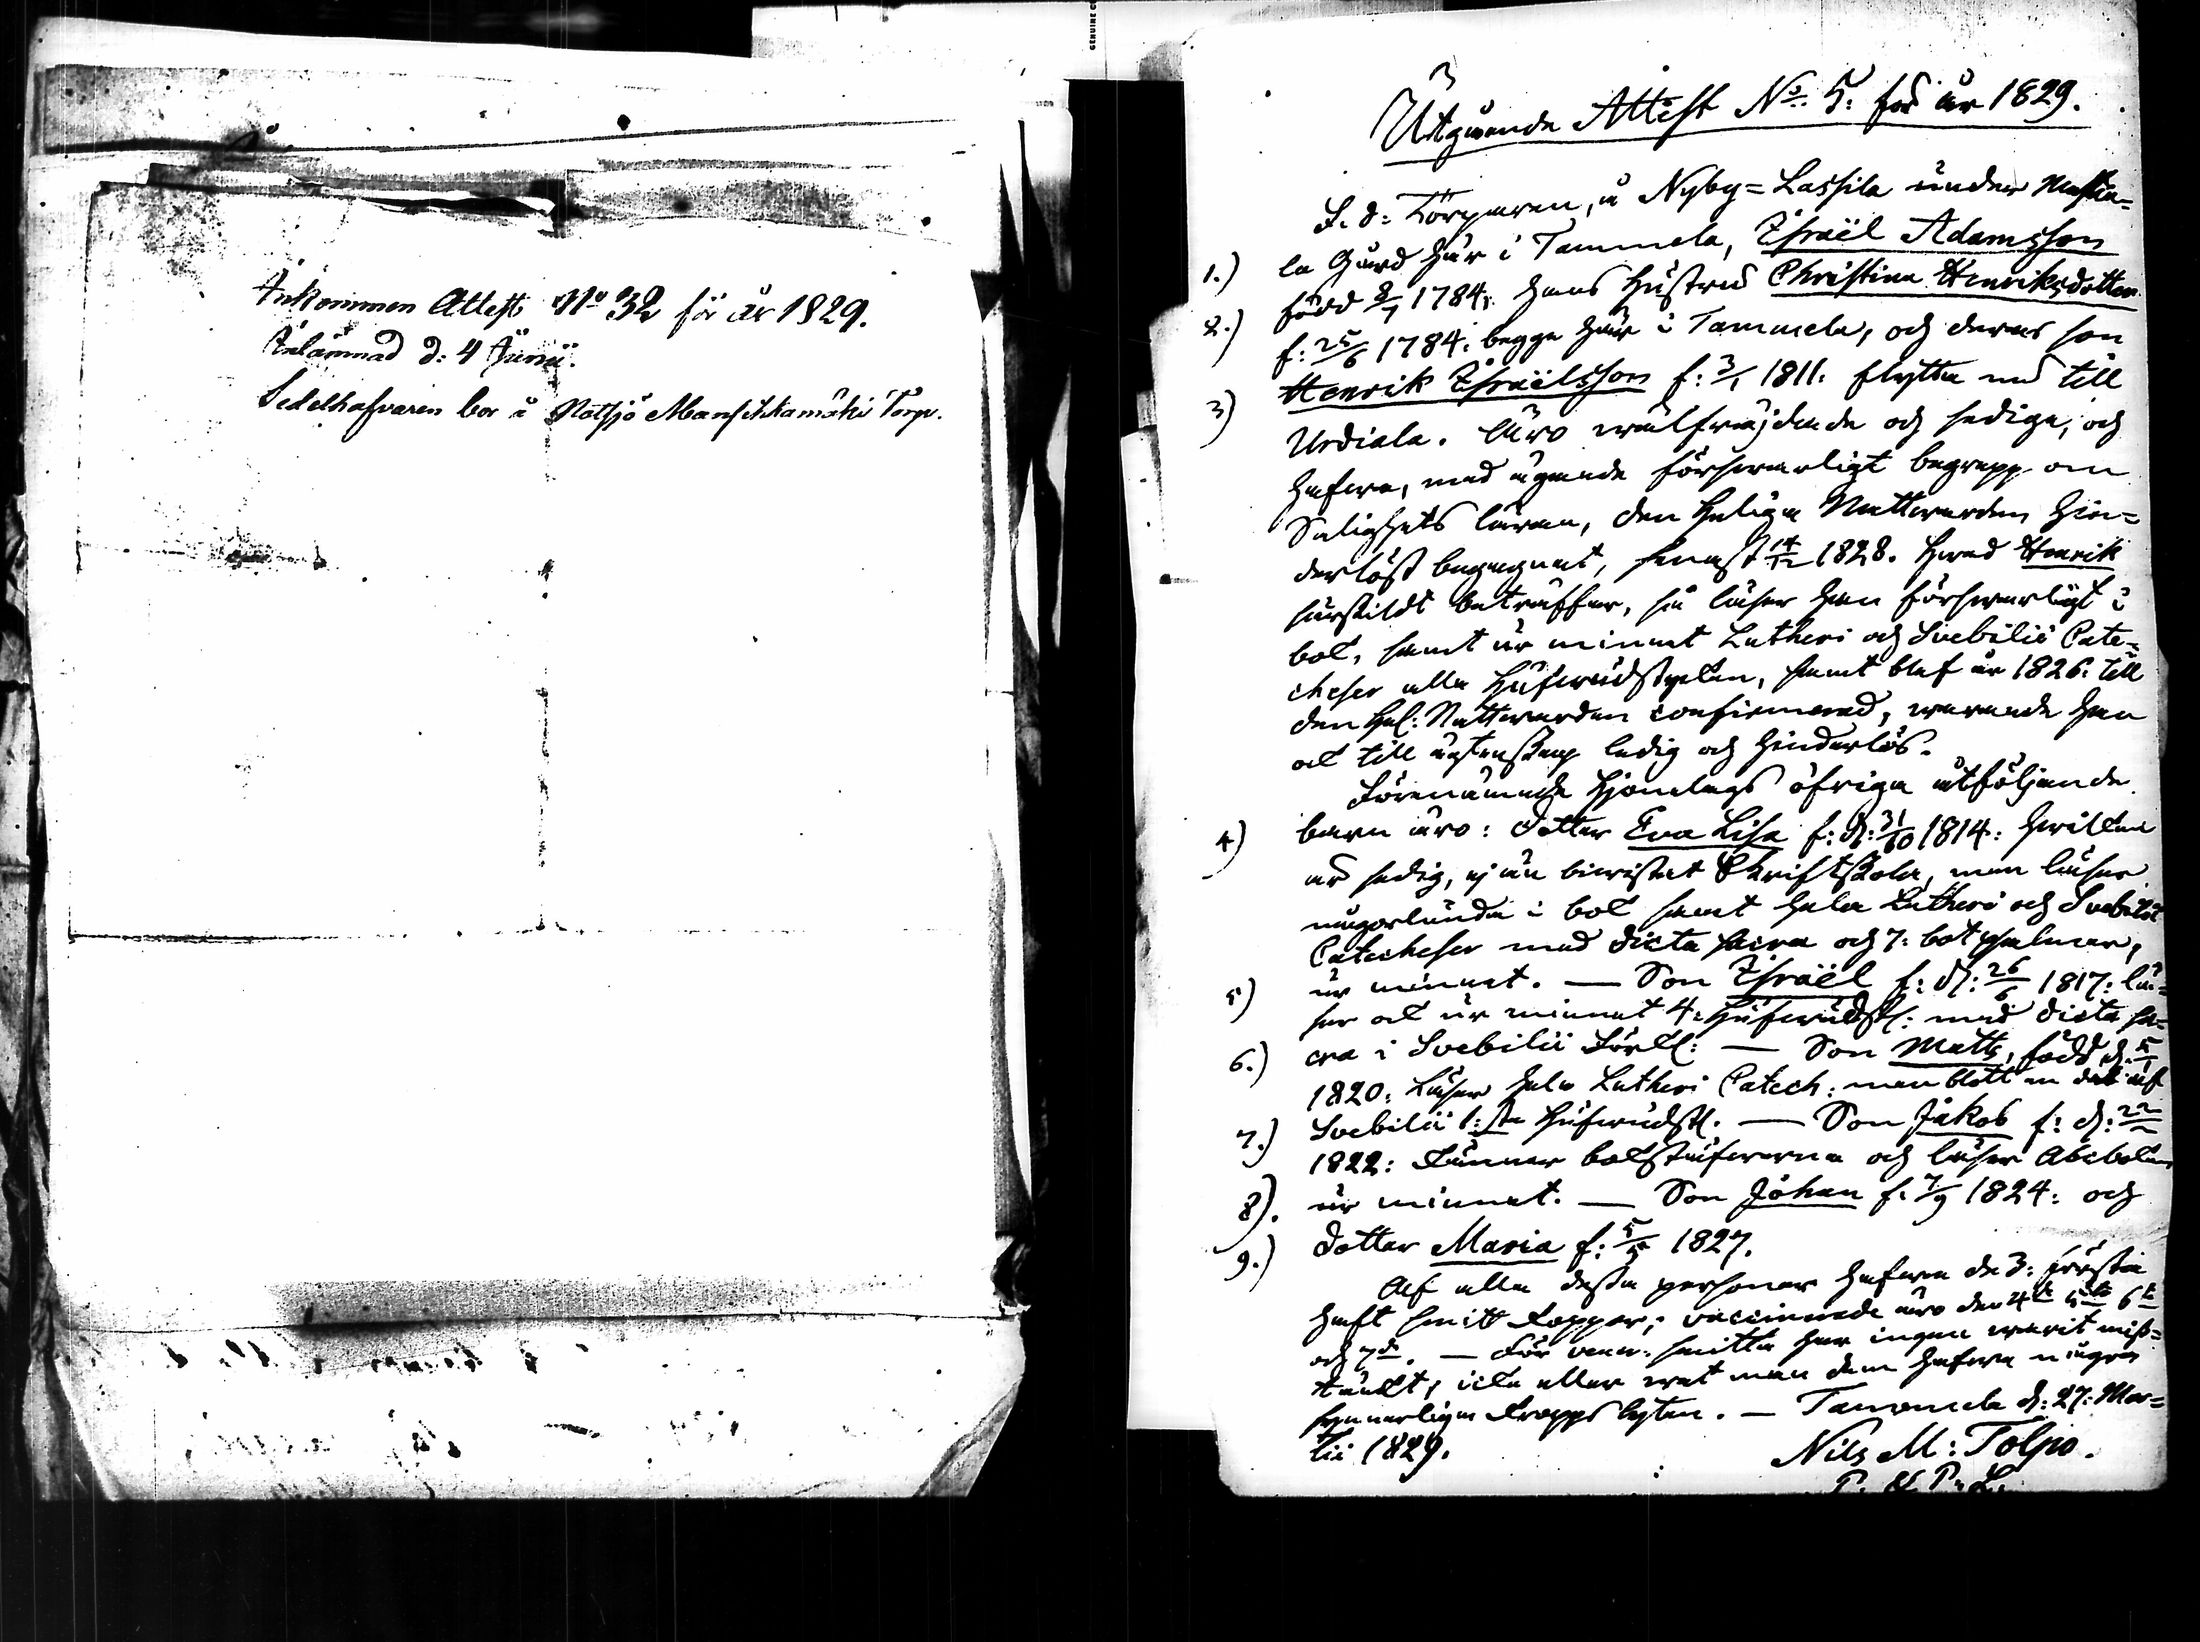 Ankommen Attest No 32 för år 1829.
Inlämnad d: 4 Junii.
Sedelhafvaren bor å Notsjö Mansikkamäki Torp.
Utgående Attest No. 5. för år 1829.
F. d: Torparen, å Nyby=Lassila under Mustia=
1.) la Gård här i Tammela, Israël Adamsson
2.) född 1784; hans hustru Christina Henriksdotter
f: 25/6 1784: begge här i Tammela, och deras son
3) Henrik Israëlsson f: 3/1 1811. flytta nu till
Urdiala. Äro wälfräjdade och sediga, och
hafwa, med ägande förswarligt begrepp om
Salighets läran, den Heliga Nattwarden hin=
derlöst begagnat, senast 14/12 1828. Hwad Henrik
särskildt beträffar, så läser han förswarligt i
bok, samt ur minnet Lutheri och Svebilii Cate=
cheser alla Hufwudstycken, samt blef år 1826. till
den Hel: Nattwarden confirmerad, warande han
ock till ägtenskap ledig och hinderlös.
Förenämnde Hjonelags öfriga åtföljande
4) barn äro: dotter Eva Lisa f: d: 31/10 1814: hwilken
är sedig, ej än biwistat Skriftskola, men läser
någorlunda i bok samt hela Lutheri och Svebilii
Catecheser med dicta sacra och 7: botpsalmer,
5) ur minnet. — Son Israël f: d: 26/6 1817: lä=
ser ock ur minnet 4: Hufwudst: med dicta sa=
6.) cra i Svebilii Förkl: — Son Matts, född d:
1820: Läser hela Lutheri Catech: men blott en del af
7.) Svebilii 1:sta Hufwudst. — Son Jakob f: d:
1822: Känner bokstäfwerna och läser Abcboken
8). ur minnet. — Son Johan f. 7/9 1824: och
9.) dotter Maria f: 1827.
Af alla dessa personer hafwa de 3: första
haft smitt koppor; vaccinerade äro den 4de 5te 6te
och 7de. — För vener: smitta har ingen warit miss=
tänkt, icke eller wet man dem hafwa någre
synnerligen kropps lyten. — Tammela d: 27: Mar=
tii 1829. Nils M: Tolpo.